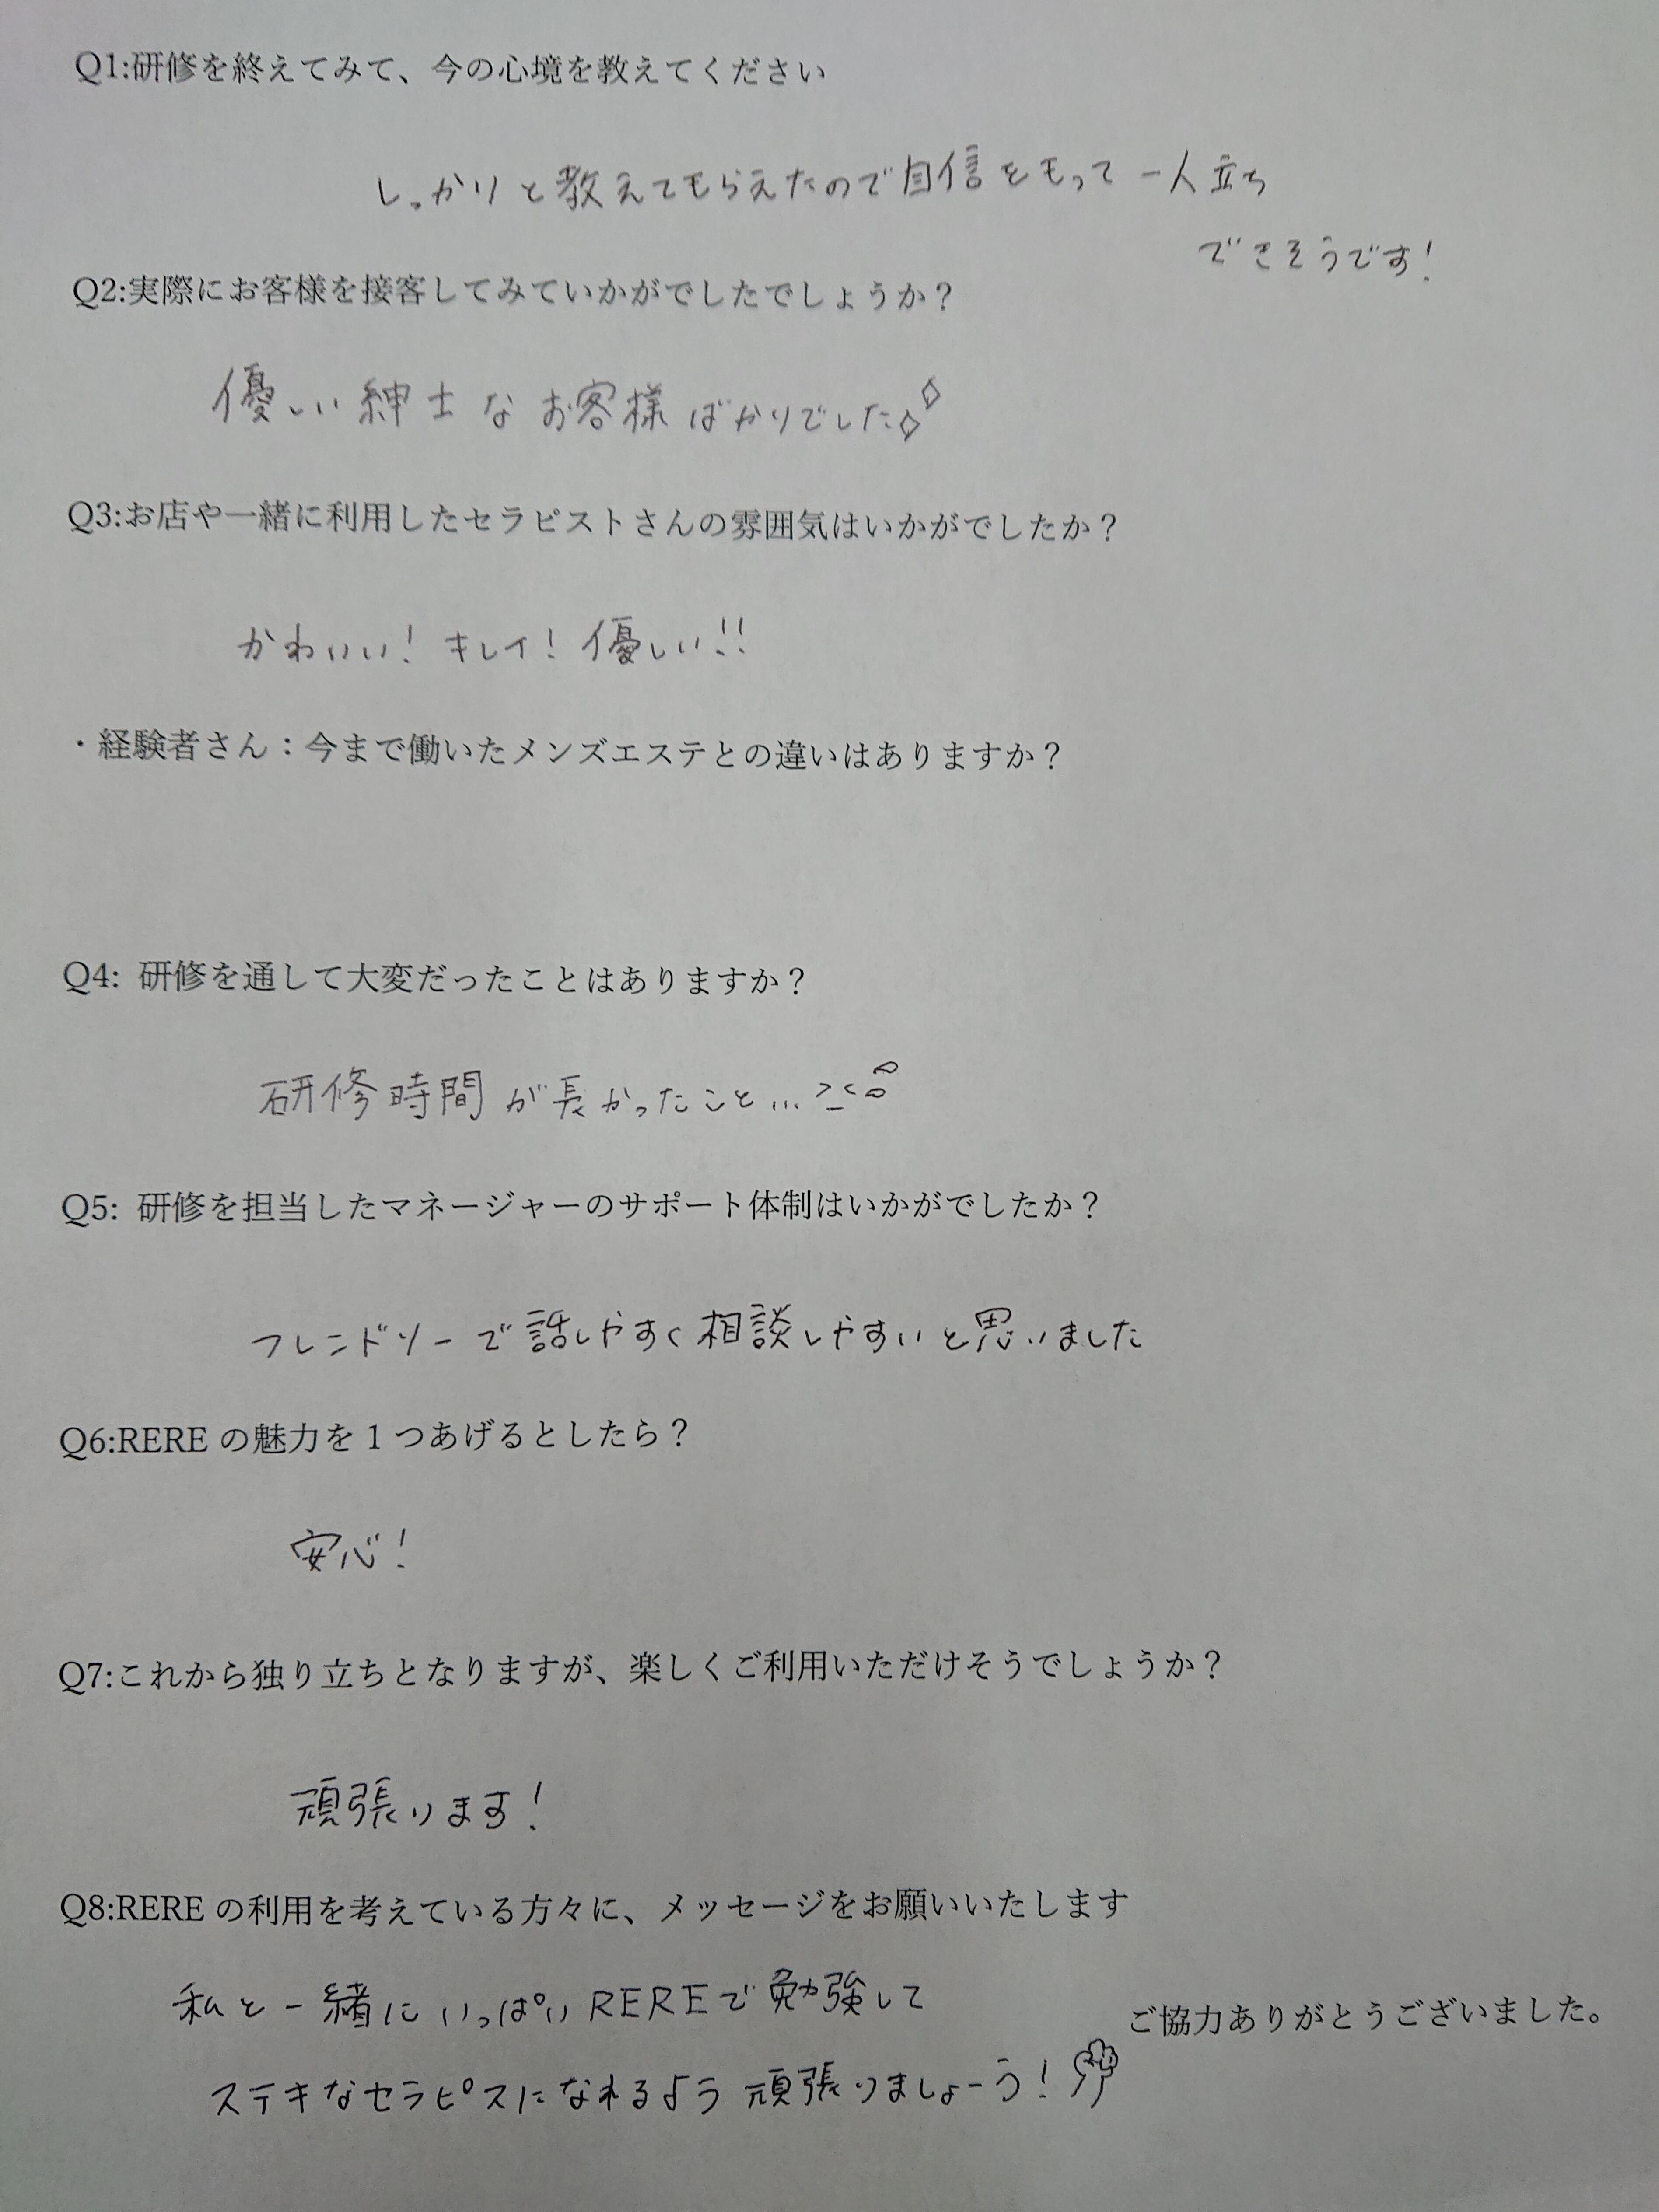 Q1:研修を終えてみて、今の心境を教えてください
しっかりと教えてもらえたので自信をもって一人立ち
できそうです!
Q2:実際にお客様を接客してみていかがでしたでしょうか?
優しい紳士なお客様ばかりでした
Q3:お店や一緒に利用したセラピストさんの雰囲気はいかがでしたか?
かわいい!キレイ!優しい!!
・経験者さん:今まで働いたメンズエステとの違いはありますか?
Q4: 研修を通して大変だったことはありますか?
研修時間が長かったこと...>_<
Q5: 研修を担当したマネージャーのサポート体制はいかがでしたか?
フレンドリーで話しやすく相談しやすいと思いました
Q6:REREの魅力を1つあげるとしたら?
安心!
Q7:これから独り立ちとなりますが、楽しくご利用いただけそうでしょうか?
頑張ります!
Q8:REREの利用を考えている方々に、メッセージをお願いいたします
私と一緒にいっぱいREREで勉強して
ご協力ありがとうございました。
ステキなセラピスになれるよう頑張りましょーう!